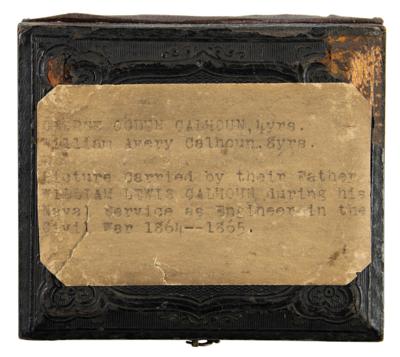 GEORGE OGDEN CALHOUN, 4yrs.
William Avery Calhoun. 8yrs.
Picture carried by their Father
WILLIAM LEWIS CALHOUN during his
Naval Service as Engineer in the
Civil War 1864--1865.